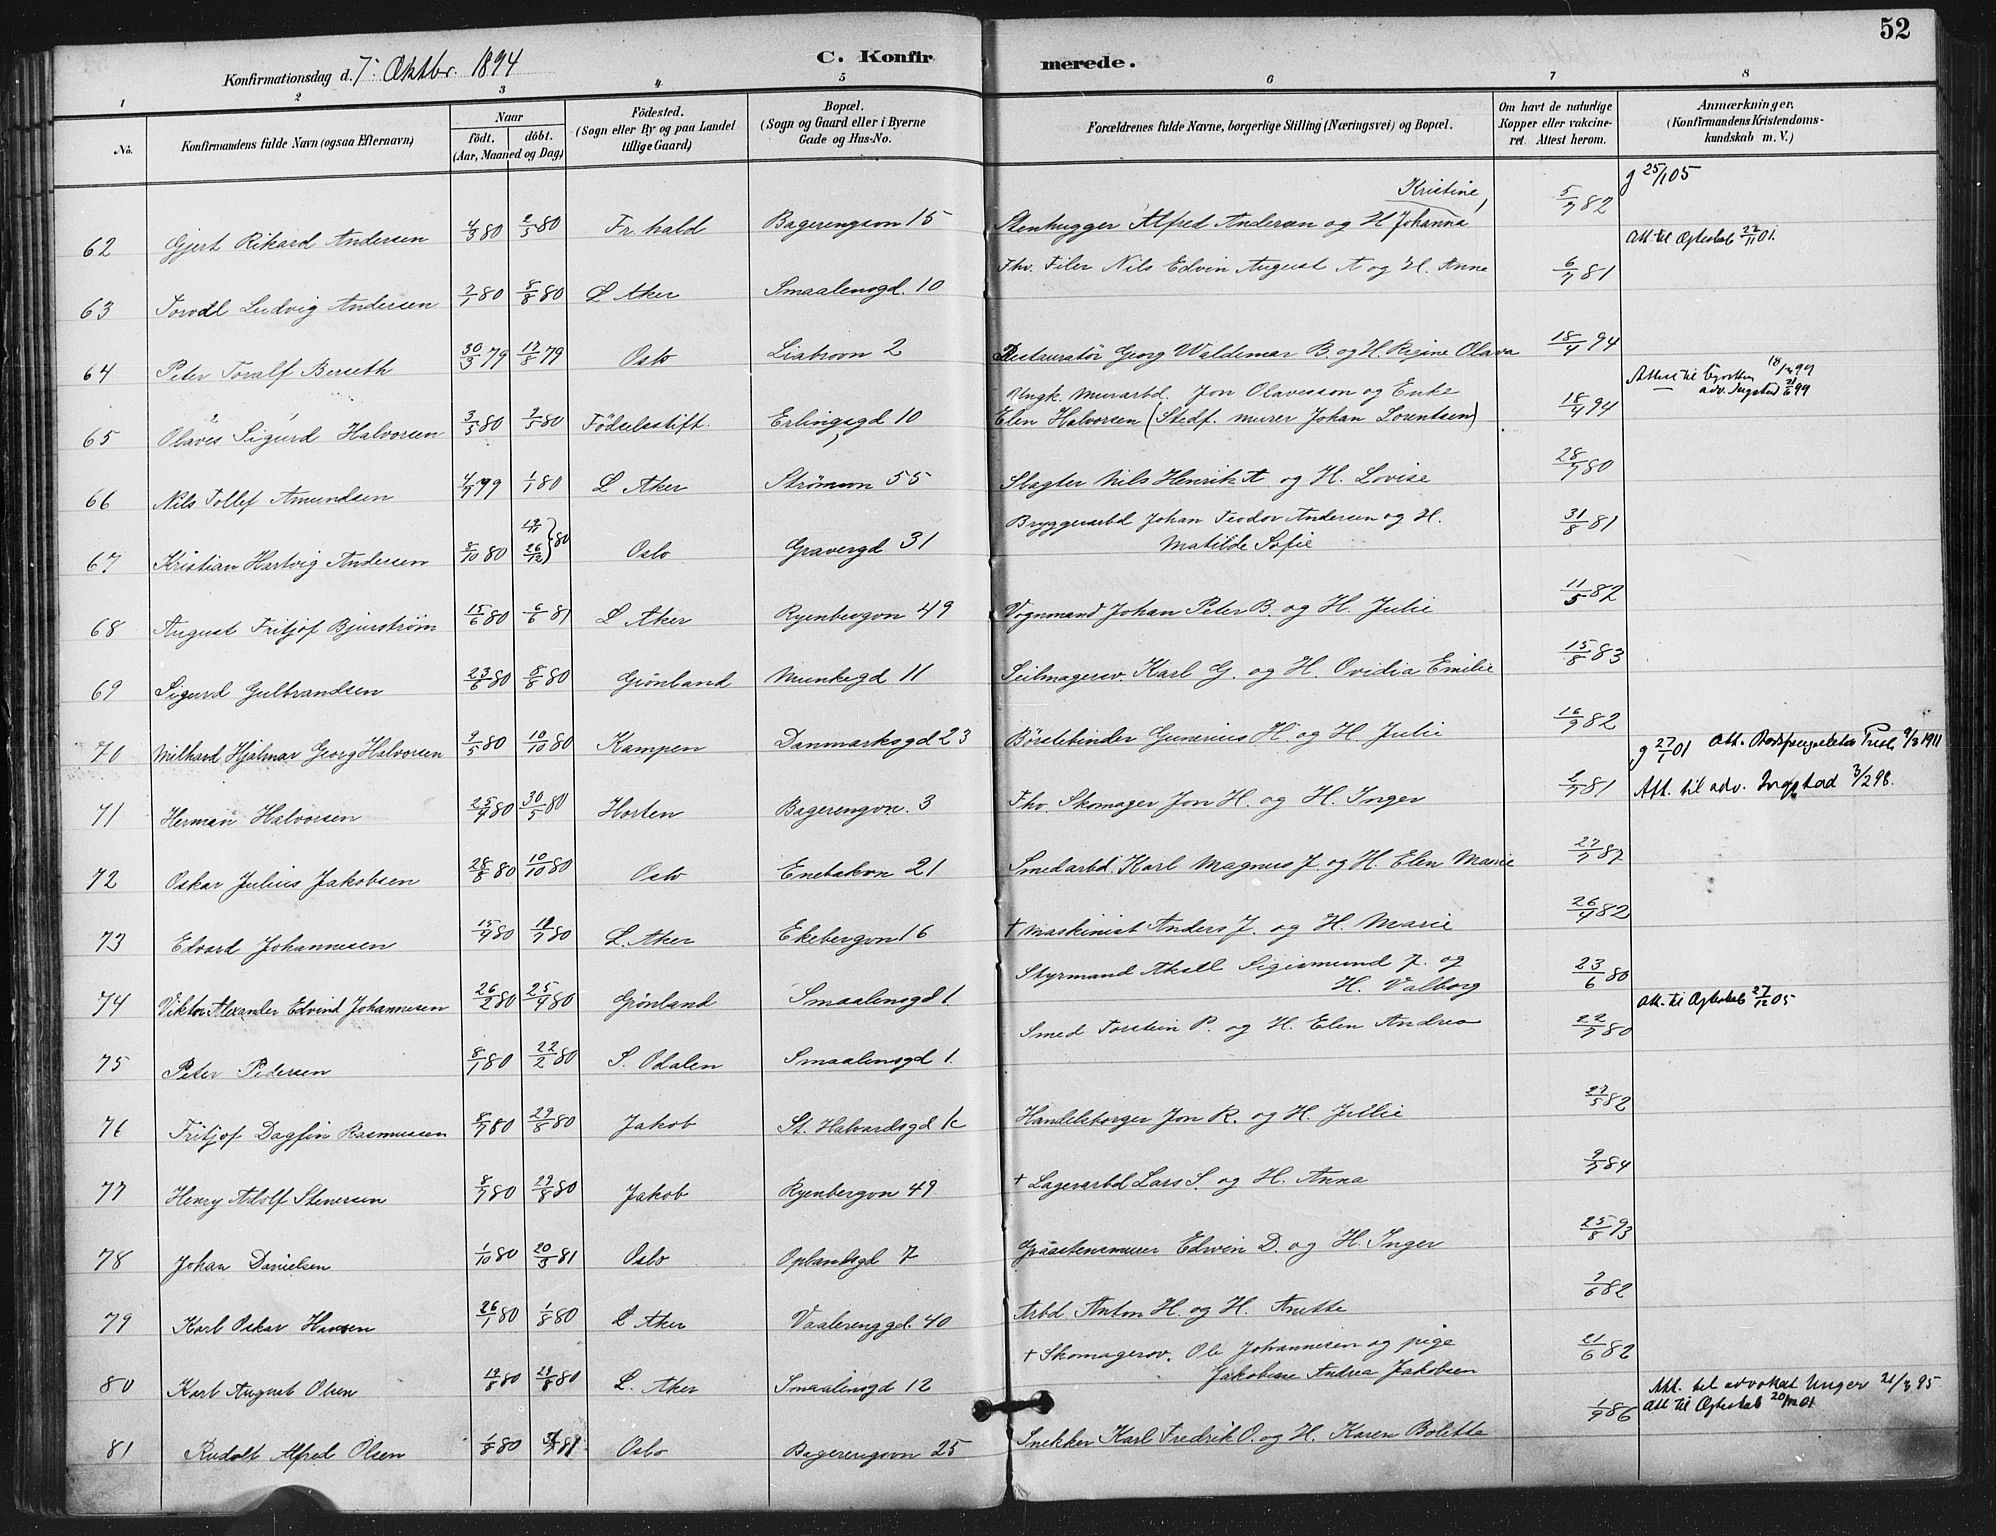 52
Konfirmationsdag d. 7. Oktbr. 1894
C. Konfirmerede.
1 2 3 4 5 6 7 8
No.
Konfirmandens fulde Navn (ogsaa Efternavn)
Naar
födt. döbt.
(Aar, Maaned og Dag)
Födested.
(Sogn eller By og paa Landet
tillige Gaard)
Bopæl.
(Sogn og Gaard eller i Byerne
Gade og Hus-No.
Forældrenes fulde Navne, borgerlige Stilling (Næringsvei) og Bopæl.
Om havt de naturlige
Kopper eller vakcine-
ret. Attest herom.
Anmærkninger,
(Konfirmandens Kristendoms-
kundskab m. V.)
g 25/1 05
Kristine,
62 Gjert Rikard Andersen 4/3 80 2/5 80 Fr.hald Bagerengson 15 Stenhugger Alfred Andersen og H Johanna 5/7 82
Att. til Ægteskab 22/11 01.
63 Torvdl Ludvig Andersen 2/1 80 8/8 80 L Aker Smaalensgd. 10 Fhv. Filer Nils Edvin August A og H. Anne 6/7 81
64 Peter Toralf Berseth 30/3 79 17/8 79 Oslo Liabrovn 2 Restauratör Georg Waldemar B. og H. Regine Olava 18/4 94
Ungk. Murarbd. Jon Olavesson og Enke
65 Olaves Sigurd Halvorsen 3/5 80 7/5 80 Födselsstift. Erlingsgd 10 Elen Halvorsen (Stedf. murer Johan Lorentsen) 18/4 94
adv. Ingstad 21/6 99
66 Nils Tollef Amundsen 4/9 79 1/1 80 L Aker Strömsvn 55 Slagter Nils Henrik A og H. Lovise 28/7 80
67 Kristian Hartvig Andersen 8/10 80 19/11 26/12 } 80 Oslo Gravergd 31 Bryggeriarbd Johan Teodor Andersen og H. 31/8 81
Matilde Sofie
68 August Fritjof Bjurström 15/6 80 6/6 81 L Aker Ryenbergvn 49 Vognmand Johan Peter B. og H. Julie 11/5 82
69 Sigurd Gulbrandsen 23/6 80 8/8 80 Grönland Munkegd 11 Seilmagersv. Karl G. og H. Ovidia Emilie 15/8 83
70 Milhard Hjalmar Georg Halvorsen 9/5 80 10/10 80 Kampen Danmarksgd 23 Börstebinder Gunerius H. og H. Julie 16/9 82
g 27/1 01
9/3 1911
71 Herman Halvorsen 25/4 80 30/5 80 Horten Bagerengvn. 3 Fhv. Skomager Jon H. og H. Inger 2/7 81 Att. til adv. Ingstad 3/2 98.
72 Oskar Julius Jakobsen 28/8 80 10/10 80 Oslo Enebakvn 21 Smedarbd. Karl Magnus J. og H. Elen Marie 27/7 87
73 Edvard Johannesen 15/4 80 18/7 80 L. Aker Ekebergvn 16 + Maskinist Anders J. og H. Marie 26/4 82
Styrmand Aksel Sigismund J. og
74 Viktor Alexander Edvind Johannesen 26/2 80 25/4 80 Grönland Smaalensgd 1 H. Valborg 23/6 80
Att. til Ægteskab 27/12 05
75 Peter Pedersen 8/1 80 22/2 80 S. Odalen Smaalensgd 1. Smed Torstein P. og H. Elen Andrea 22/7 80
76 Fritjof Dagfin Rasmussen 8/7 80 29/8 80 Jakob St. Halvardsgd 1c Handelsborger Jon R. og H. Jullie 27/5 82
77 Henry Adolf Stenersen 8/7 80 29/8 80 Jakob Ryenbergvn 49 + Lagerarbd Lars S. og H. Anna 9/7 84
78 Johan Danielsen 1/10 80 20/3 81 Oslo Oplandsgd 7 Graastensmurer Edwin D. og H. Inger 25/8 93
79 Karl Oskar Hansen 26/1 80 1/8 80 L Aker Vaalerenggd. 40 Arbd Anton H. og H. Anette 2/6 82
+ Skomagersv. Ole Johannesen og pige
80 Karl August Olsen 19/8 80 29/8 80 L. Aker Smaalensgd 12 Jakobine Andrea Jakobsen 21/6 82
Att. til advokat Unger 21/3 95
Att til Ægteskab
81 Rudolf Alfred Olsen 1/8 80 Oslo Bagerengsvn 25 Snekker Karl Fredrik O. og H. Karen Bolette 1/9 86